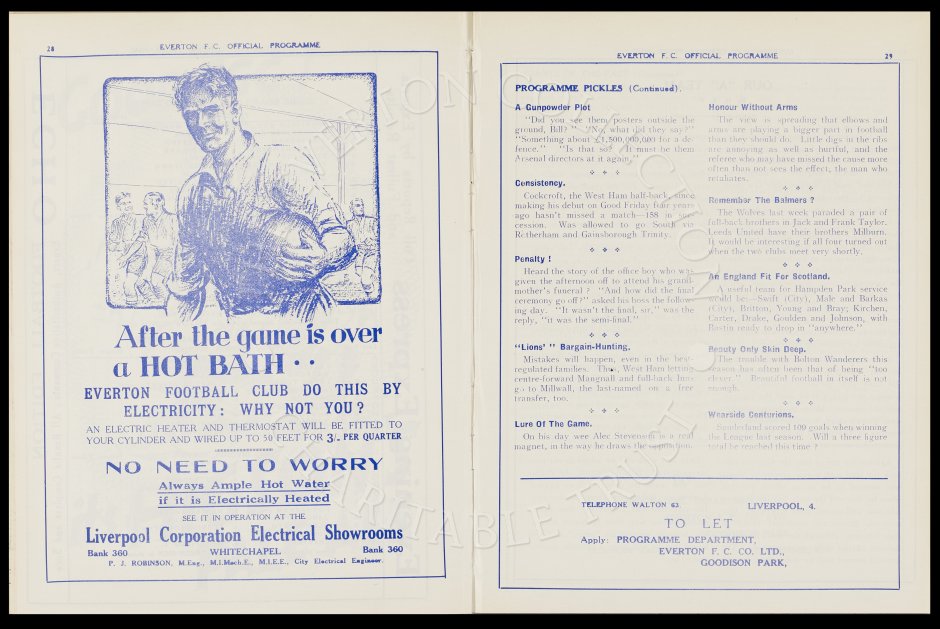 28
EVERTON F. C. OFFICIAL PROGRAMME
After the game is over
a HOT BATH · ·
EVERTON FOOTBALL CLUB DO THIS BY
ELECTRICITY: WHY NOT YOU?
AN ELECTRIC HEATER AND THERMOSTAT WILL BE FITTED TO
YOUR CYLINDER AND WIRED UP TO 50 FEET FOR 3/- PER QUARTER
NO NEED TO WORRY
Always Ample Hot Water
if it is Electrically Heated
SEE IT IN OPERATION AT THE
Liverpool Corporation Electrical Showrooms
Bank 360 WHITECHAPEL Bank 360
P. J. ROBINSON, M.Eng., M.I.Mech.E., M.I.E.E., City Electrical Engineer.
EVERTON F. C. OFFICIAL PROGRAMME
29
PROGRAMME PICKLES (Continued).
A Gunpowder Plot
"Did you see them posters outside the
ground, Bill?" "No, what did they say?"
"Something about £1,500,000,003 for a de-
fence." "Is that so? It must be them
Arsenal directors at it again."
Consistency.
Cockroft, the West Ham half-back, since
making his debut on Good Friday four years
ago hasn't missed a match—158 in suc-
cession. Was allowed to go South via
Rotherham and Gainsborough Trinity.
Penalty !
Heard the story of the office boy who was
given the afternoon off to attend his grand-
mother's funeral? "And how did the final
ceremony go off?" asked his boss the follow-
ing day. "It wasn't the final, sir," was the
reply, "it was the semi-final."
"Lions' " Bargain-Hunting.
Mistakes will happen, even in the best-
regulated families. Thus, West Ham letting
centre-forward Mangnall and full-back
go to Millwall, the last-named on a free
transfer, too.
Lure Of The Game.
On his day wee Alec Stevenson is a real
magnet, in the way he draws the opposition.
Honour Without Arms
The view is spreading that elbows and
arms are playing a bigger part in football
than they should do. Little digs in the ribs
are annoying as well as hurtful, and the
referee who may have missed the cause more
often than not sees the effect, the man who
retaliates.
Remember The Balmers ?
The Wolves last week paraded a pair of
full-back brothers in Jack and Frank Taylor.
Leeds United have their brothers Milburn.
It would be interesting if all four turned out
when the two clubs meet very shortly.
An England Fit For Scotland.
A useful team for Hampden Park service
could be:—Swift (City), Male and Barkas
(City), Britton, Young and Bray; Kirchen,
Carter, Drake, Goulden and Johnson, with
Bastin ready to drop in "anywhere."
Beauty Only Skin Deep.
The trouble with Bolton Wanderers this
season has often been that of being "too
clever." Beautiful football in itself is not
enough.
Wearside Centurions.
Sunderland scored 109 goals when winning
the League last season. Will a three figure
total be reached this time?
TELEPHONE WALTON 63. LIVERPOOL, 4.
TO LET
Apply: PROGRAMME DEPARTMENT,
EVERTON F. C. CO. LTD.,
GOODISON PARK,